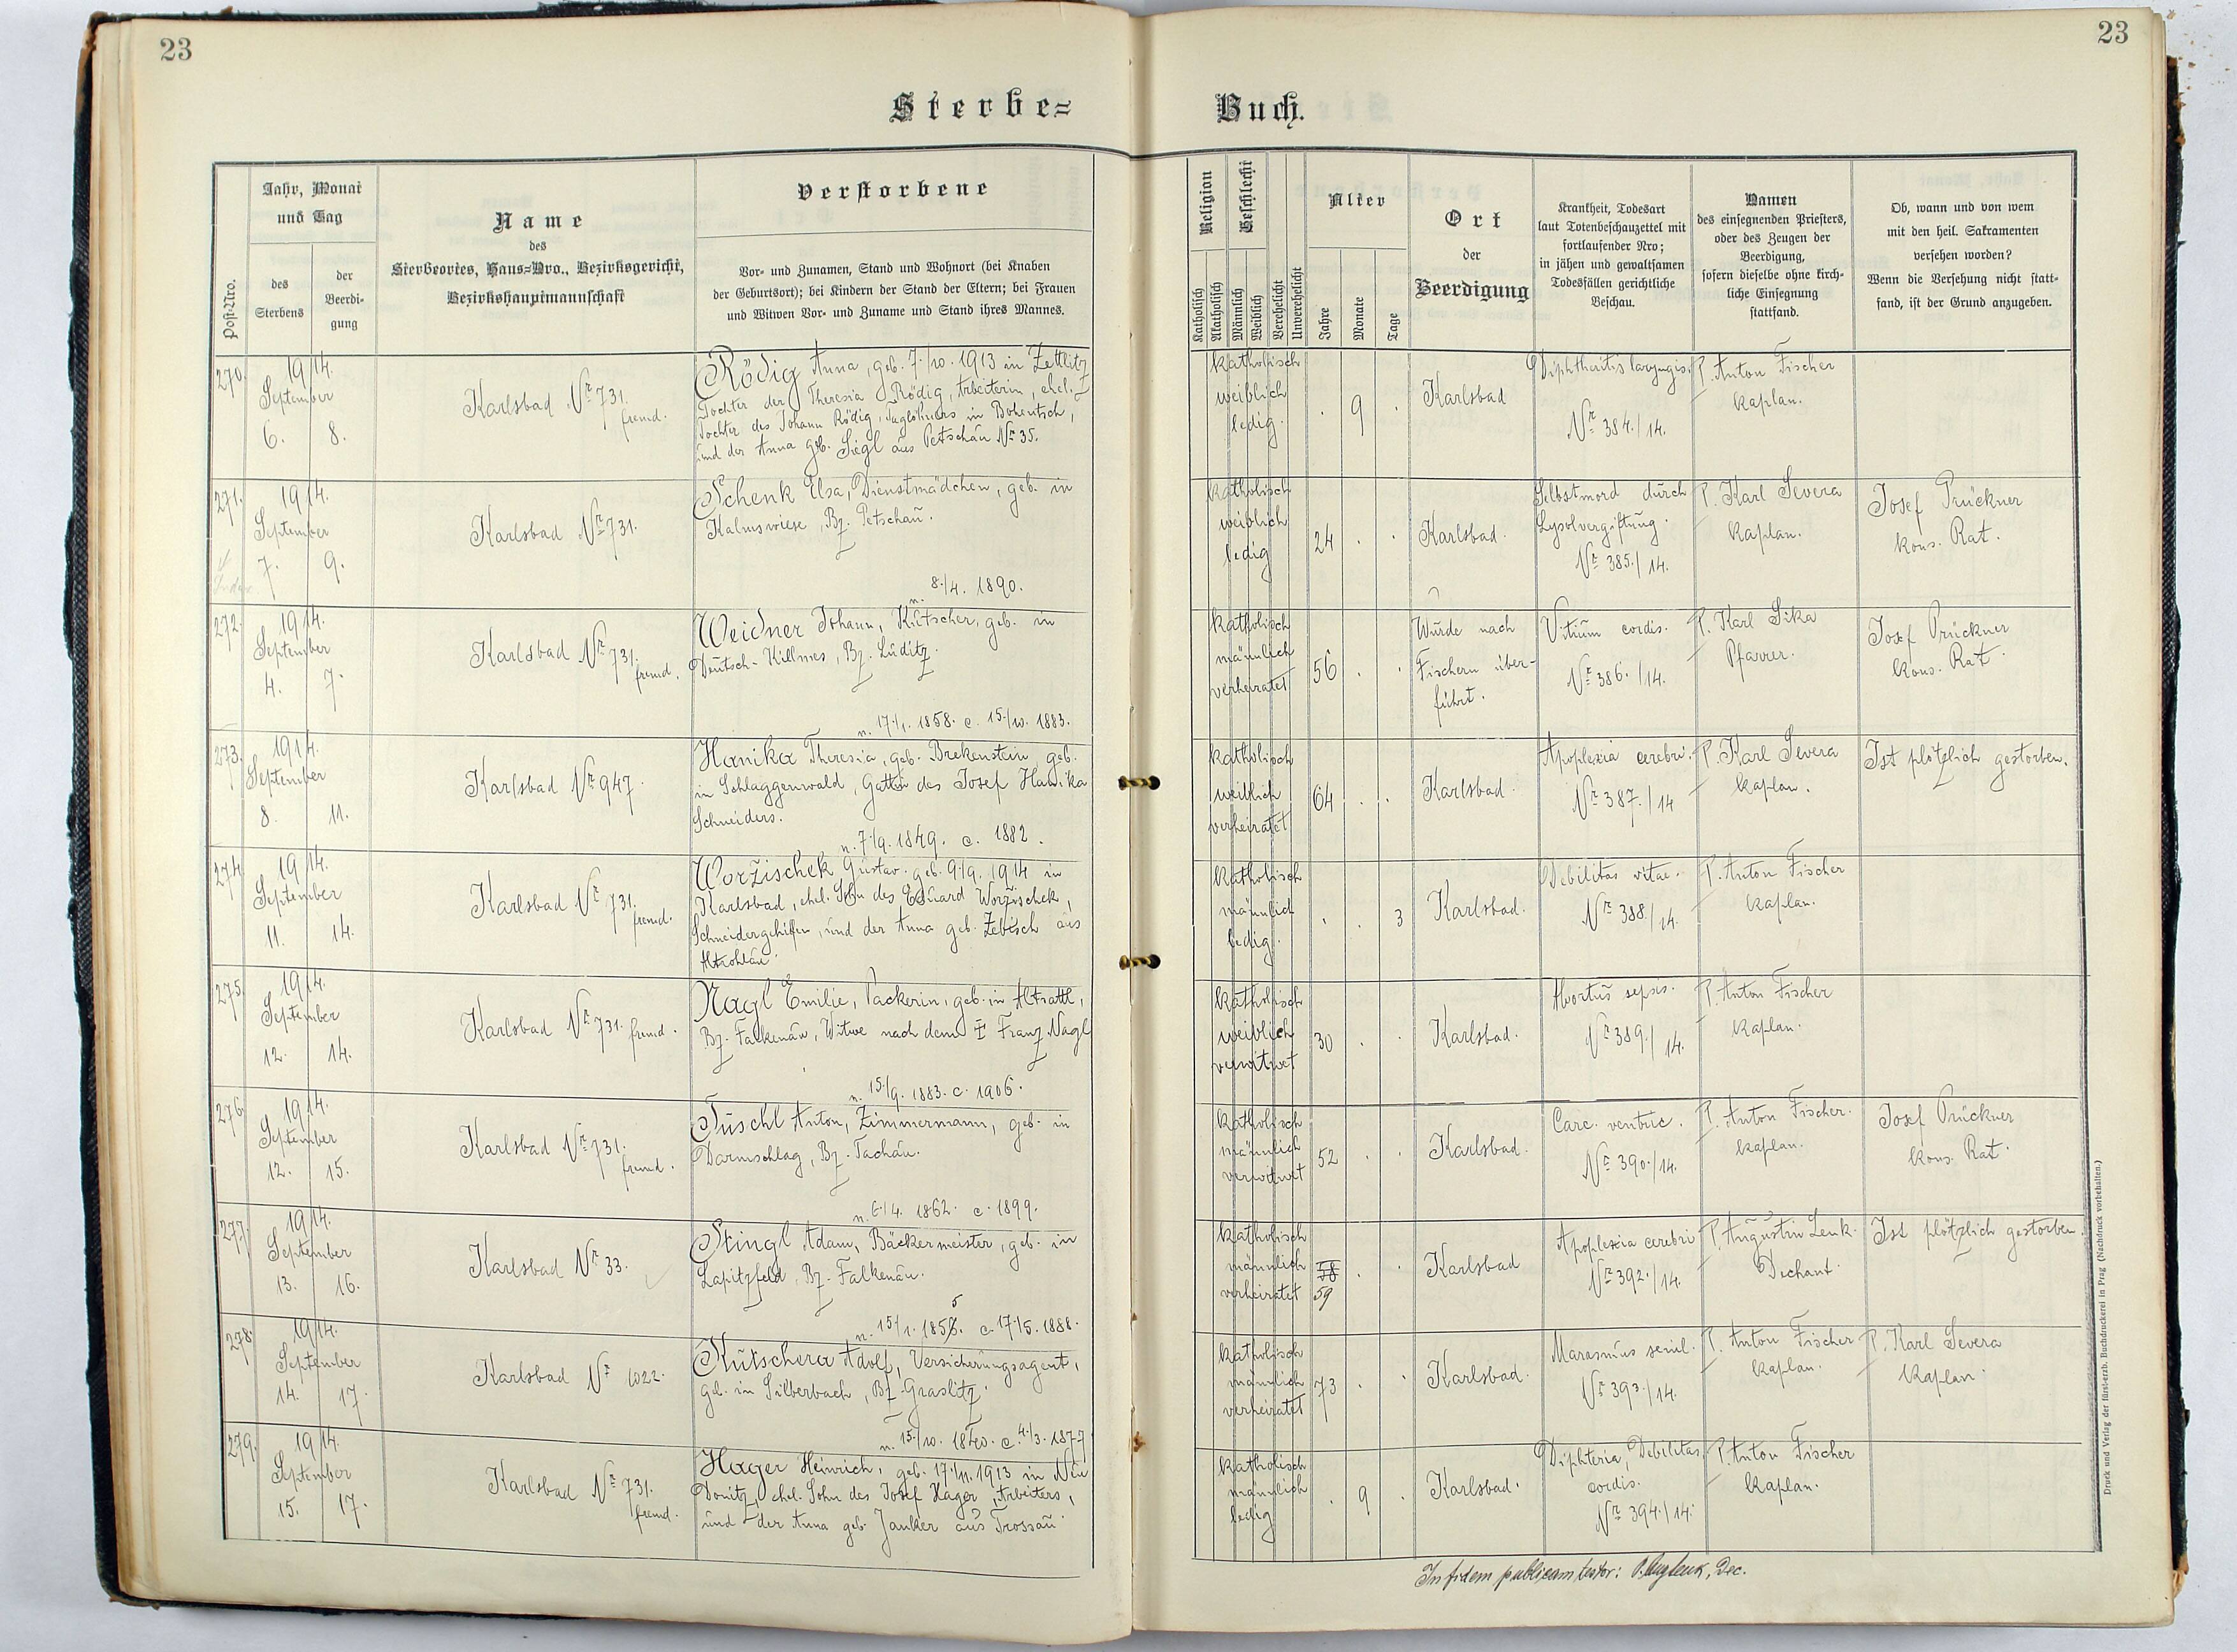 23
23
Sterbe=
Buch.
Post-Nro.
Jahr, Monat
und Tag
des
Sterbens
der
Beerdi-
gung
Name
des
Sterbeortes, Haus=Nro., Bezirksgericht,
Bezirkshauptmannschaft
Verstorbene
Vor- und Zunamen, Stand und Wohnort (bei Knaben
der Geburtsort); bei Kindern der Stand der Eltern; bei Frauen
und Witwen Vor- und Zuname und Stand ihres Mannes.
Religion
Katholisch
Akatholisch
Geschlecht
Männlich
Weiblich
Verehelicht
Unverehelicht
Alter
Jahre
Monate
Tage
Ort
der
Beerdigung
Krankheit, Todesart
laut Totenbeschauzettel mit
fortlaufender Nro;
in jähen und gewaltsamen
Todesfällen gerichtliche
Beschau.
Namen
des einsegnenden Priesters,
oder des Zeugen der
Beerdigung,
sofern dieselbe ohne kirch-
liche Einsegnung
stattfand.
Ob, wann und von wem
mit den heil. Sakramenten
versehen worden?
Wenn die Versehung nicht statt-
fand, ist der Grund anzugeben.
270.
1914.
September
6. 8.
Karlsbad Nr 731.
fremd.
Rödig Anna, geb. 7./10. 1913 in Zettlitz
Tochter der Theresia Rödig, Arbeiterin, ehel.
Tochter des Johann Rödig, Taglöhners in Bohentsch,
und der Anna geb. Siegl aus Petschau Nr 35.
katholisch
weiblich
ledig.
. 9 .
Karlsbad
Diphtheritis laryngis.
Nr 384./14.
P. Anton Fischer
Kaplan.
271.
1914.
September
7. 9.
Karlsbad Nr 731.
Schenk Elsa, Dienstmädchen, geb. in
Kalmswiese, Bz. Petschau.
n. 8./4. 1890.
katholisch
weiblich
ledig
24 . .
Karlsbad.
Selbstmord durch
Lysolvergiftung.
Nr 385./14.
P. Karl Severa
Kaplan.
Josef Prückner
kons. Rat.
272.
1914.
September
4. 7.
Karlsbad Nr 731.
fremd.
Weidner Johann, Kutscher, geb. in
Deutsch-Killmes, Bz. Luditz.
n. 17./1. 1858. c. 15./10. 1883.
katholisch
männlich
verheiratet
56 . .
Wurde nach
Fischern über-
führt.
Vitium cordis.
Nr 386./14.
P. Karl Sika
Pfarrer.
Josef Prückner
Kons. Rat.
273.
1914.
September
8. 11.
Karlsbad Nr 947.
Hanika Theresia, geb. Brekenstein, geb.
in Schlaggenwald, Gattin des Josef Hanika
Schneiders.
n. 7./9. 1849. c. 1882.
katholisch
weiblich
verheiratet
64 . .
Karlsbad.
Apoplexia cerebri.
Nr 387./14
P. Karl Severa
Kaplan.
Ist plötzlich gestorben.
274.
1914.
September
11. 14.
Karlsbad Nr 731.
fremd.
Worzischek Gustav. geb. 9./9. 1914 in
Karlsbad, ehel. Sohn des Eduard Worzischek,
Schneidergehilfen, und der Anna geb. Zebisch aus
Altrohlau.
katholisch
männlich
ledig.
. . 3
Karlsbad.
Debilitas vitae.
Nr 388./14.
P. Anton Fischer
Kaplan.
275.
1914.
September
12. 14.
Karlsbad Nr 731. fremd.
Nagl Emilie, Packerin, geb. in Altsattl,
Bz. Falkenau, Witwe nach dem † Franz Nagl
n. 15./9. 1883. c. 1906.
katholisch
weiblich
verwitwet
30 . .
Karlsbad.
Abortus sepsis.
Nr 389./14.
P. Anton Fischer
Kaplan.
276.
1914.
September
12. 15.
Karlsbad Nr 731.
fremd.
Tuschl Anton, Zimmermann, geb. in
Darmschlag, Bz. Tachau.
n. 6./4. 1862. c. 1899.
katholisch
männlich
verwitwet
52 . .
Karlsbad.
Carc. ventric.
Nr 390./14.
P. Anton Fischer.
Kaplan.
Josef Prückner
Kons. Rat.
277.
1914.
September
13. 16.
Karlsbad Nr 33.
Stingl Adam, Bäckermeister, geb. in
Lapitzfeld, Bz. Falkenau.
5
n. 15./1. 1856. c. 17./5. 1888.
katholisch
männlich
verheiratet
58 . .
59
Karlsbad
Apoplexia cerebri
Nr 392./14.
P. Augustin Lenk.
Dechant.
Ist plötzlich gestorben
278.
1914.
September
14. 17.
Karlsbad Nr 1022.
Kutschera Adolf, Versicherungsagent,
geb. in Silberbach, Bz. Graslitz.
n. 15./10. 1840. c. 4./3. 1877
katholisch
männlich
verheiratet
73 . .
Karlsbad.
Marasmus senil.
Nr 393./14.
P. Anton Fischer
Kaplan.
P. Karl Severa
Kaplan.
279.
1914.
September
15. 17.
Karlsbad Nr 731.
fremd.
Hager Heinrich, geb. 17./11. 1913 in Neu
Donitz, ehel. Sohn des Josef Hager, Arbeiters,
und der Anna geb. Janker aus Trossau.
katholisch
männlich
ledig
. 9 .
Karlsbad.
Diphteria, Debilitas
cordis.
Nr 394./14.
P. Anton Fischer
Kaplan.
In fidem publicam testor: P. Aug Lenk, Dec.
Druck und Verlag der fürst-erzb. Buchdruckerei in Prag (Nachdruck vorbehalten.)